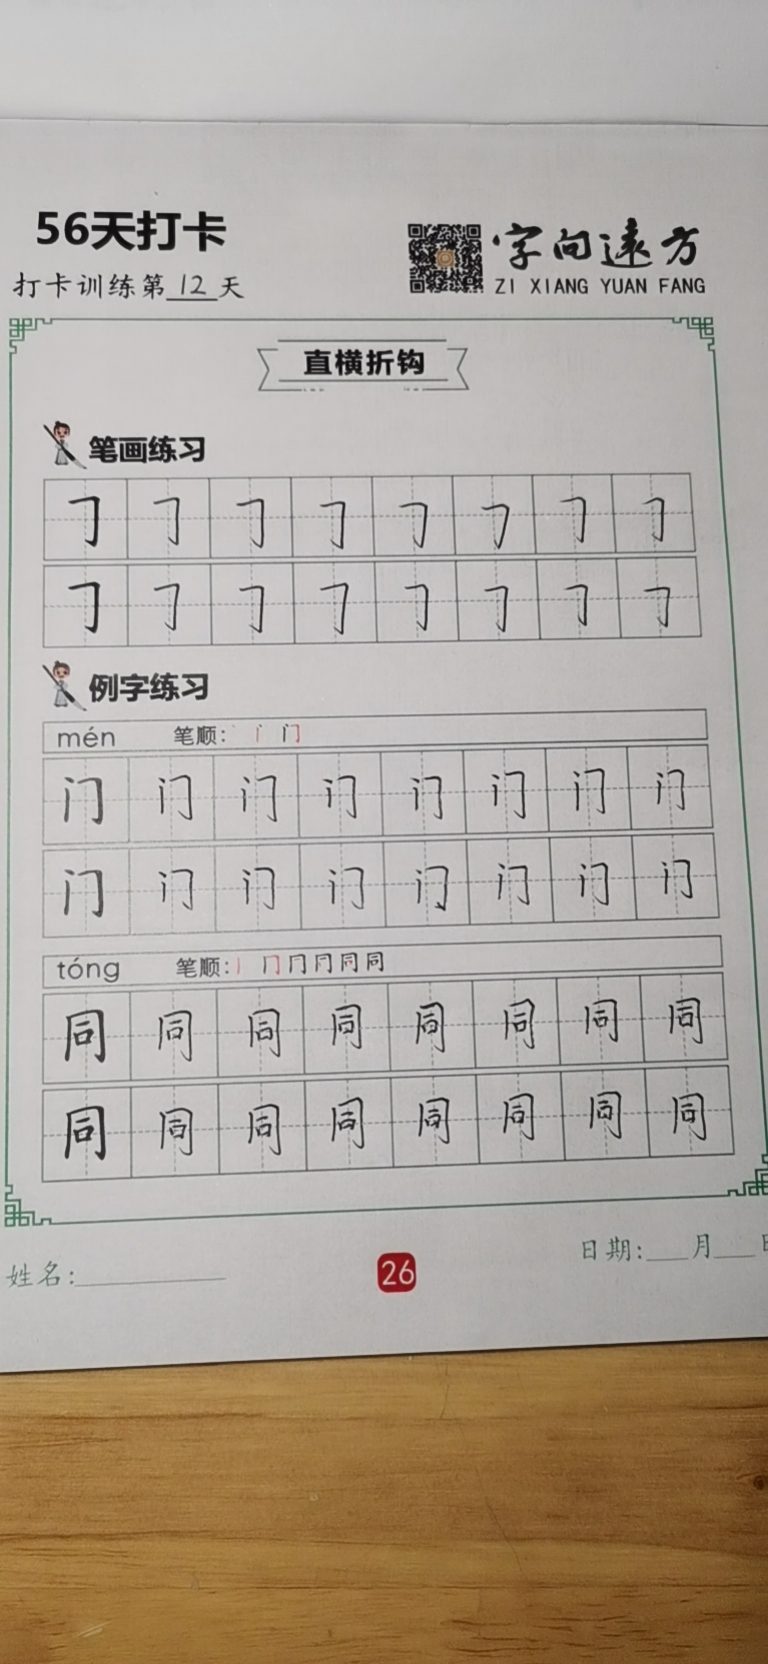 56天打卡
字向远方
打卡训练第 12 天
ZI XIANG YUAN FANG
直横折钩
笔画练习
㇆ ㇆ ㇆ ㇆ ㇆ ㇆ ㇆ ㇆
㇆ ㇆ ㇆ ㇆ ㇆ ㇆ ㇆ ㇆
例字练习
mén 笔顺: 门
门 门 门 门 门 门 门 门
门 门 门 门 门 门 门 门
tóng 笔顺: 丨 冂 同 同
同 同 同 同 同 同 同 同
同 同 同 同 同 同 同 同
姓名:
26
日期: 月 日